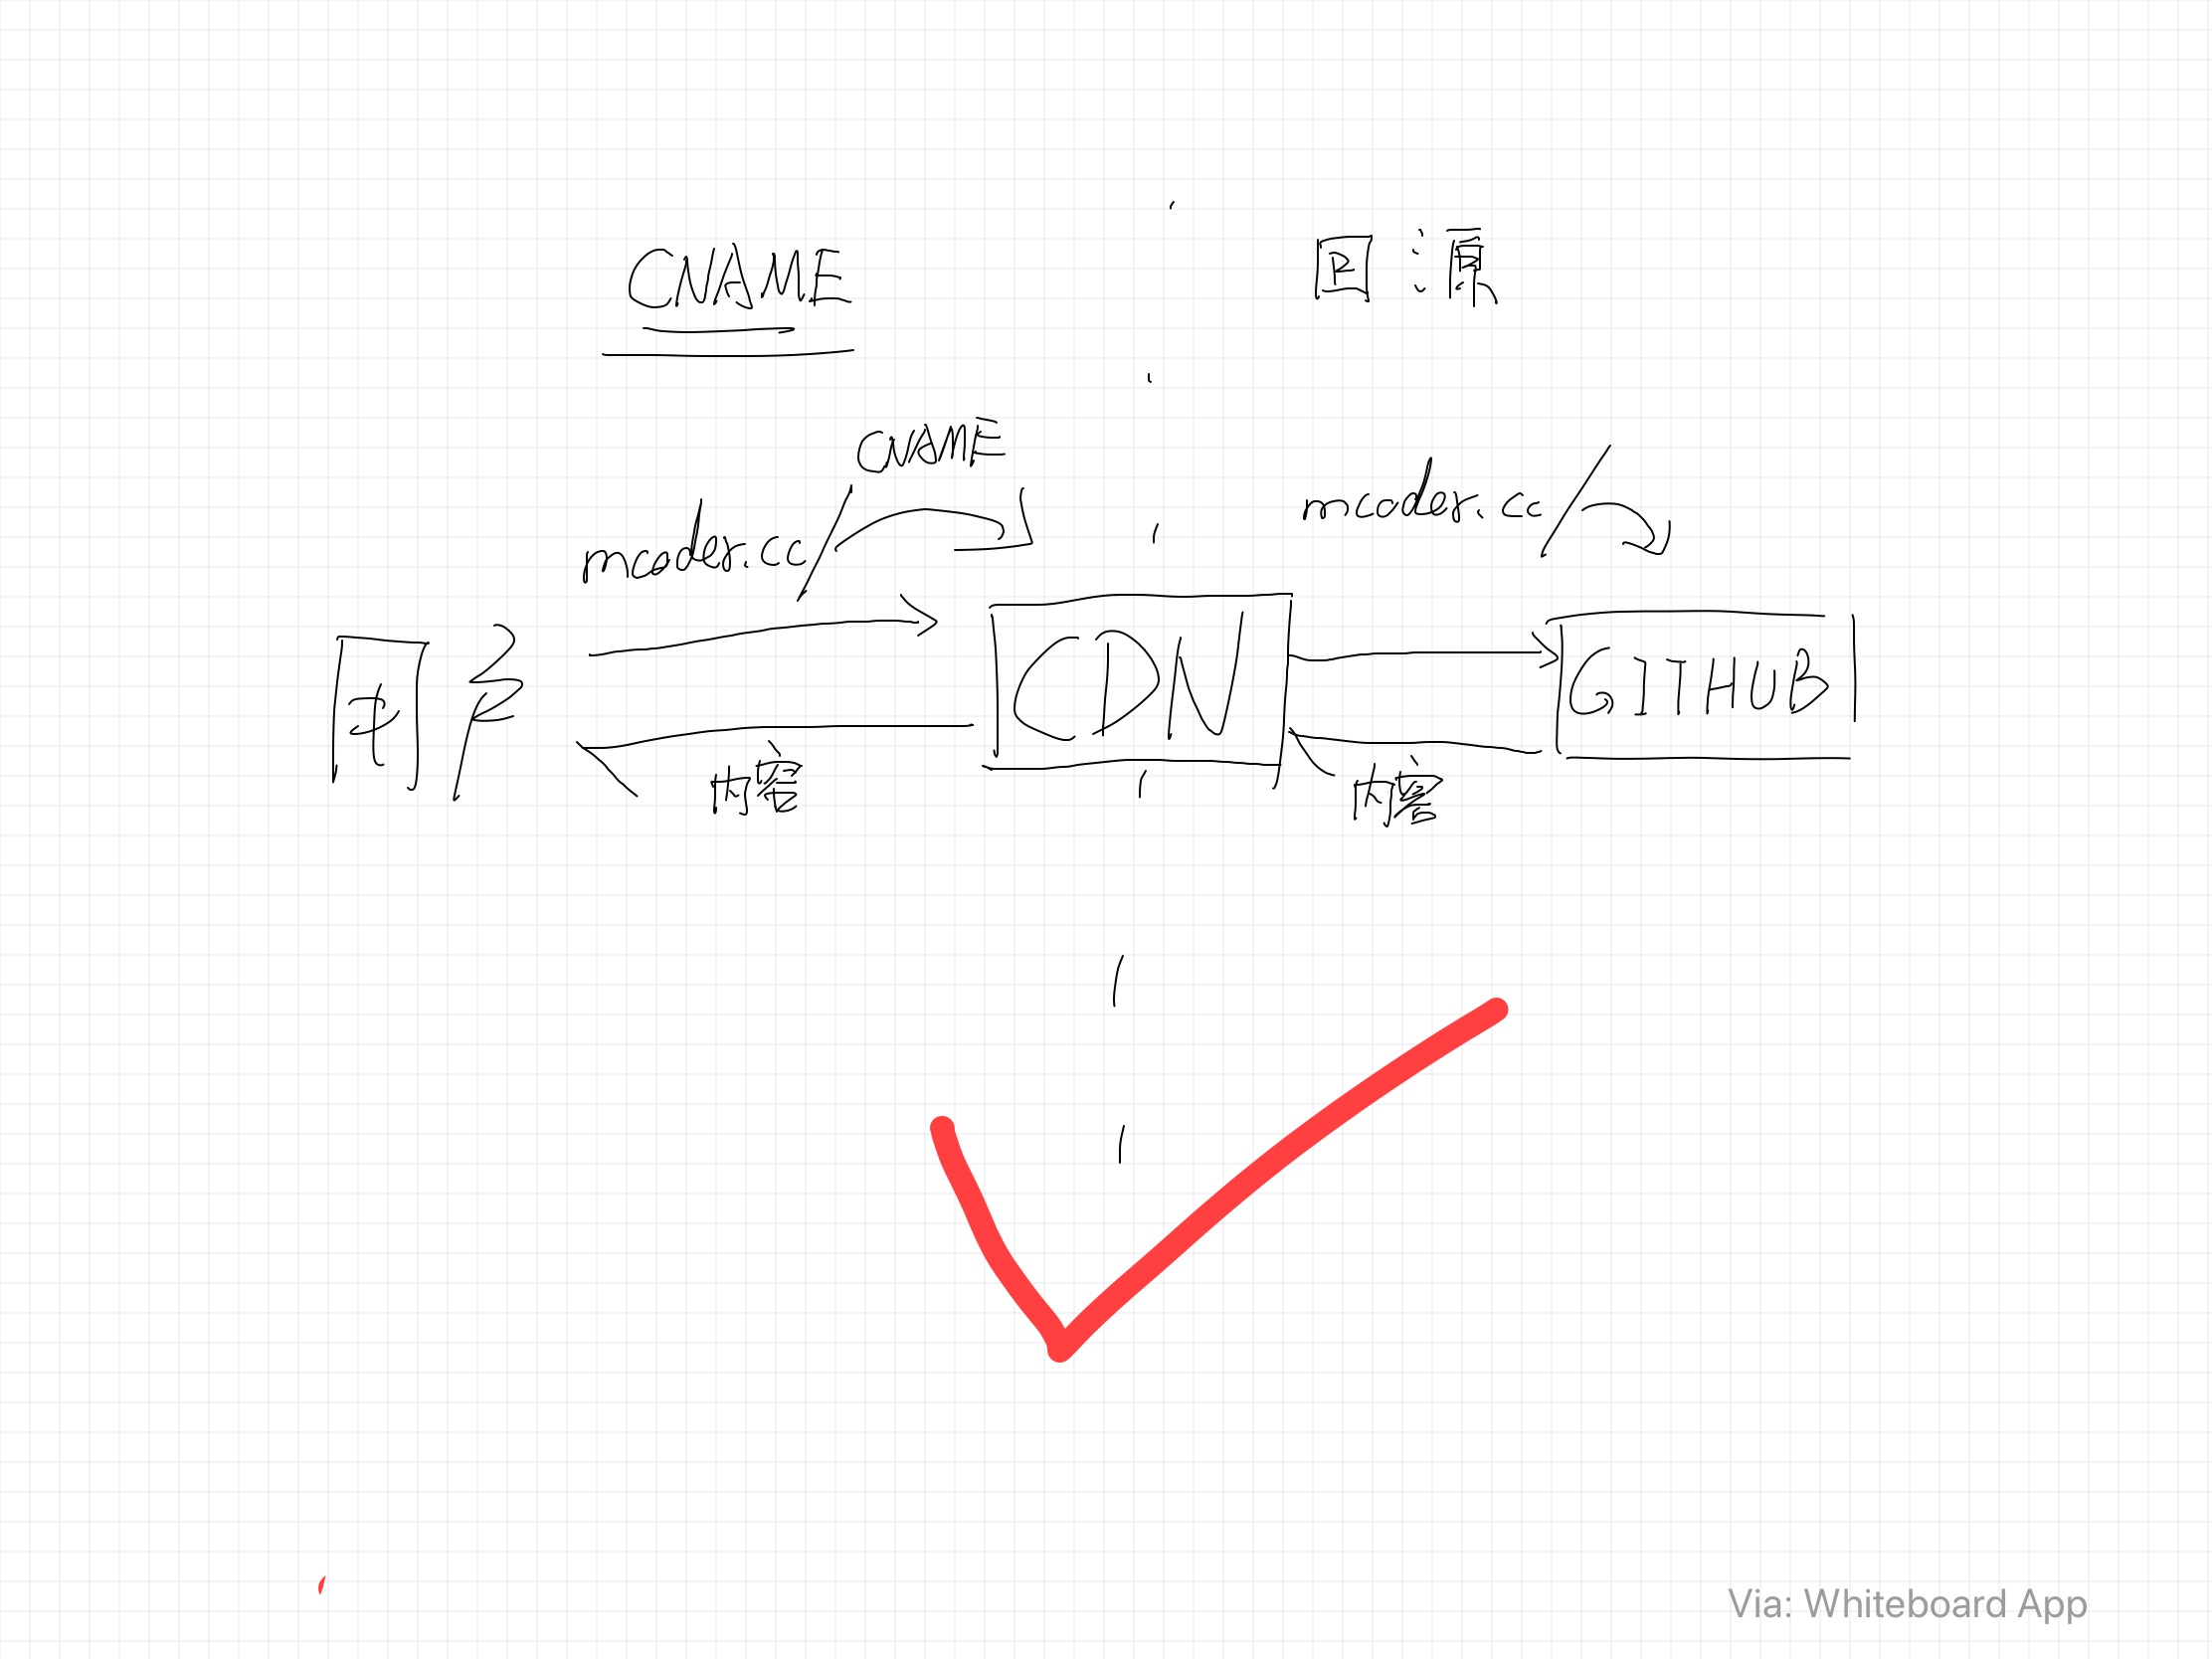 CNAME
回源
CNAME
mcoder.cc/
mcoder.cc/
用户
CDN
GITHUB
内容
内容
Via: Whiteboard App